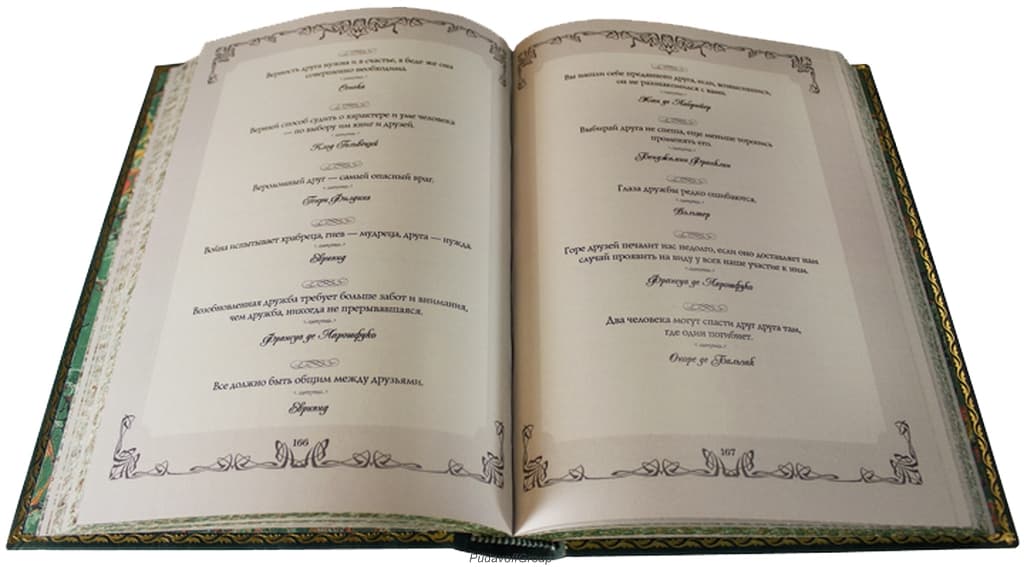 Верность друга нужна и в счастье, в беде же она
совершенно необходима.
Сенека
Верней способ судить о характере и уме человека
— по выбору им книг и друзей.
Клод Гельвеций
Вероломный друг — самый опасный враг.
Генри Филдинг
Война испытывает храбреца, гнев — мудреца, друга — нужда.
Еврипид
Возобновленная дружба требует больше забот и внимания,
чем дружба, никогда не прерывавшаяся.
Франсуа де Ларошфуко
Все должно быть общим между друзьями.
Еврипид
166
Вы нашли себе преданного друга, если, возвысившись,
он не раззнакомился с вами.
Жан де Лабрюйер
Выбирай друга не спеша, еще меньше торопись
променять его.
Бенджамин Франклин
Глаза дружбы редко ошибаются.
Вольтер
Горе друзей печалит нас недолго, если оно доставляет нам
случай проявить на виду у всех наше участие к ним.
Франсуа де Ларошфуко
Два человека могут спасти друг друга там,
где один погибнет.
Оноре де Бальзак
167
PudavoffGroup